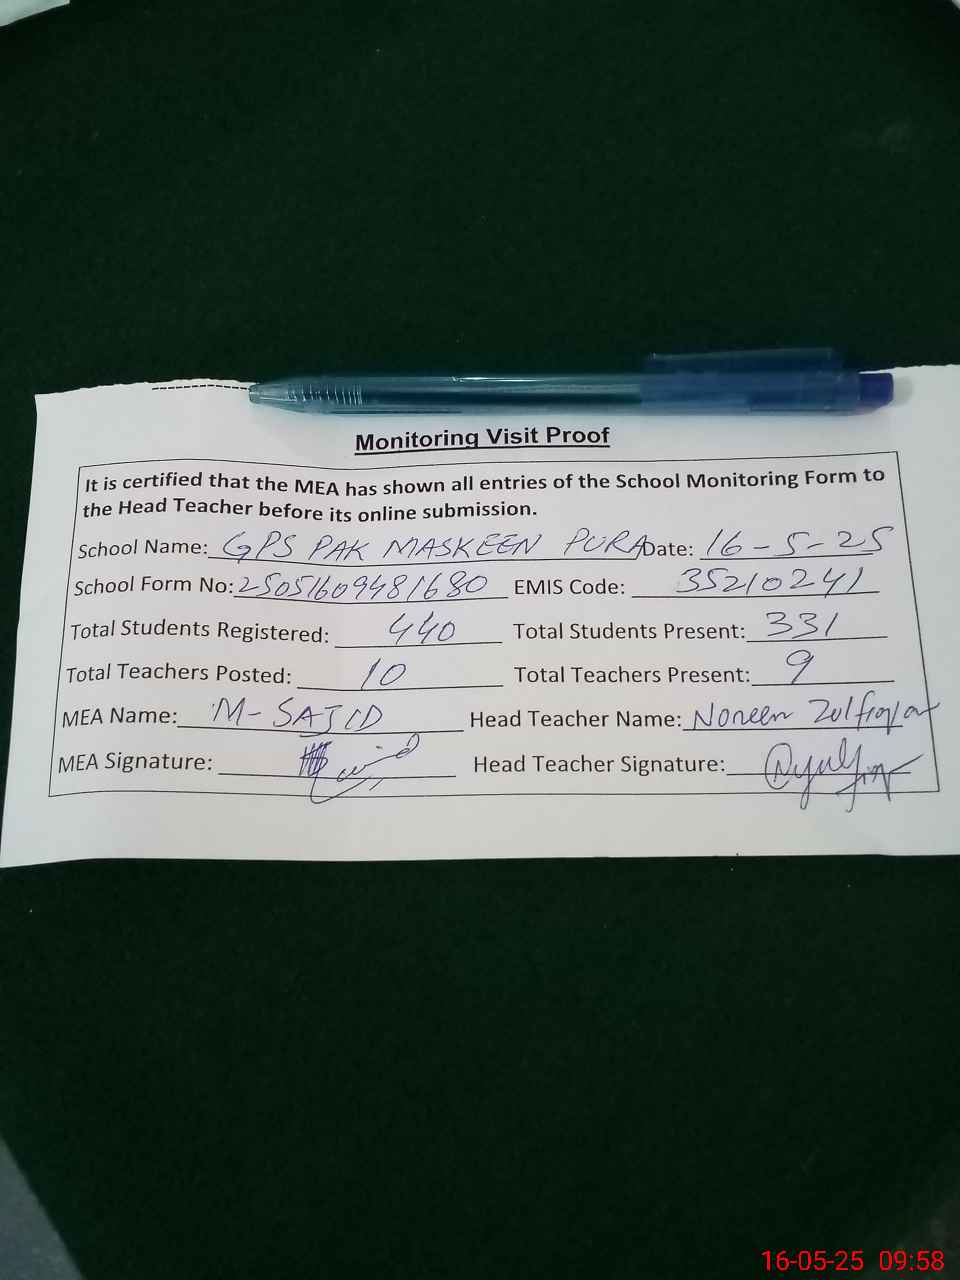 Monitoring Visit Proof
It is certified that the MEA has shown all entries of the School Monitoring Form to
the Head Teacher before its online submission.
School Name: GPS PAK MASKEEN PURA Date: 16-5-25
School Form No: 25051609481680 EMIS Code: 35210241
Total Students Registered: 440 Total Students Present: 331
Total Teachers Posted: 10 Total Teachers Present: 9
MEA Name: M-SAJID Head Teacher Name: Noreen
MEA Signature: Head Teacher Signature:
16-05-25 09:58